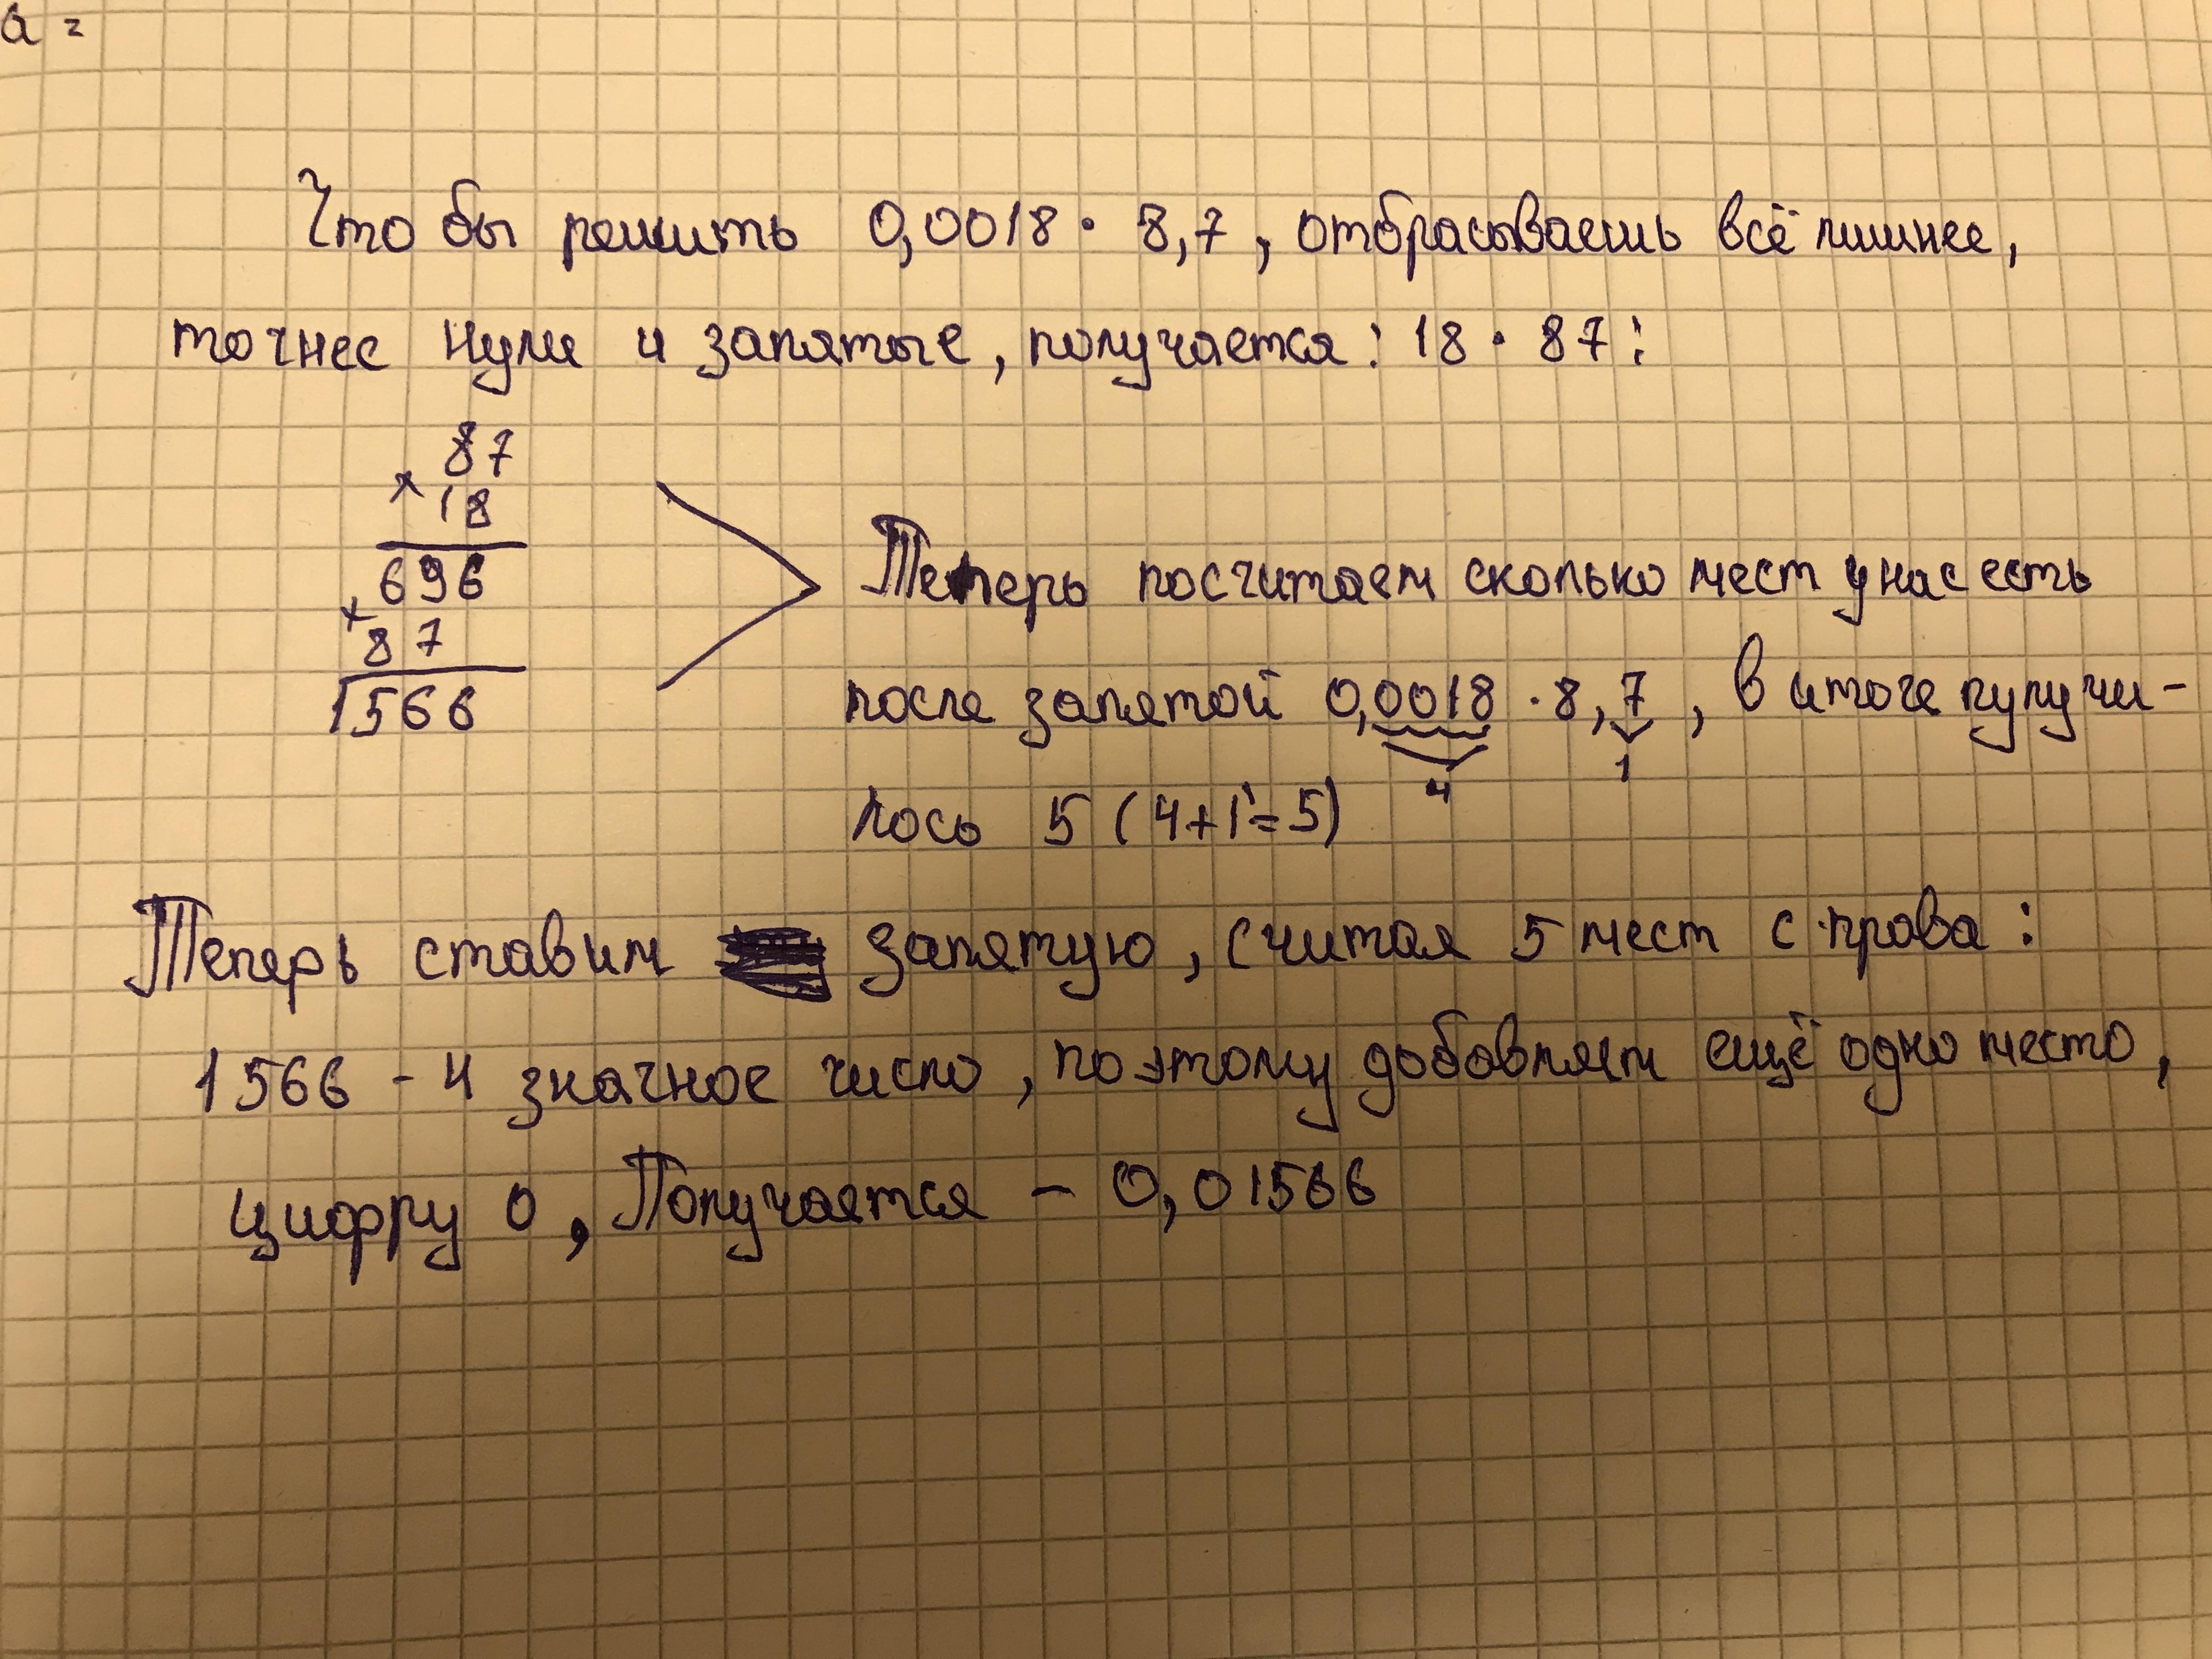 a =
Что бы решить 0,0018 · 8,7, отбрасываешь всё лишнее,
точнее нули и запятые, получается: 18 · 87:
87
× 18
696
× 87
1566
Теперь посчитаем сколько мест у нас есть
после запятой 0,0018 · 8,7, в итоге пулучи-
4 1
лось 5 (4+1=5)
Теперь ставим запятую, считая 5 мест с права:
1566 - 4 значное число, поэтому добавляем ещё одно место,
цифру 0, Получается - 0,01566